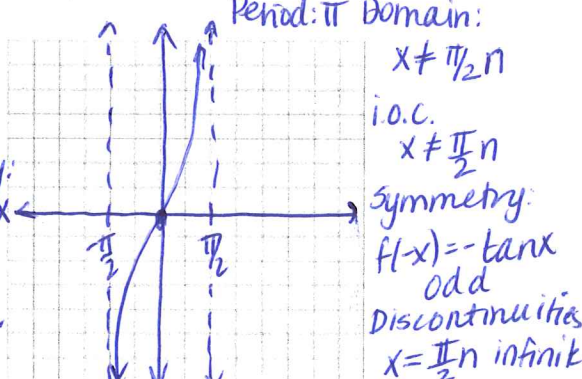 Period: π Domain:
x ≠ π/2 n
i.o.c.
x ≠ π/2 n
Symmetry:
f(-x) = -tanx
odd
Discontinuities
x = π/2 n infinit
-π/2 π/2
x